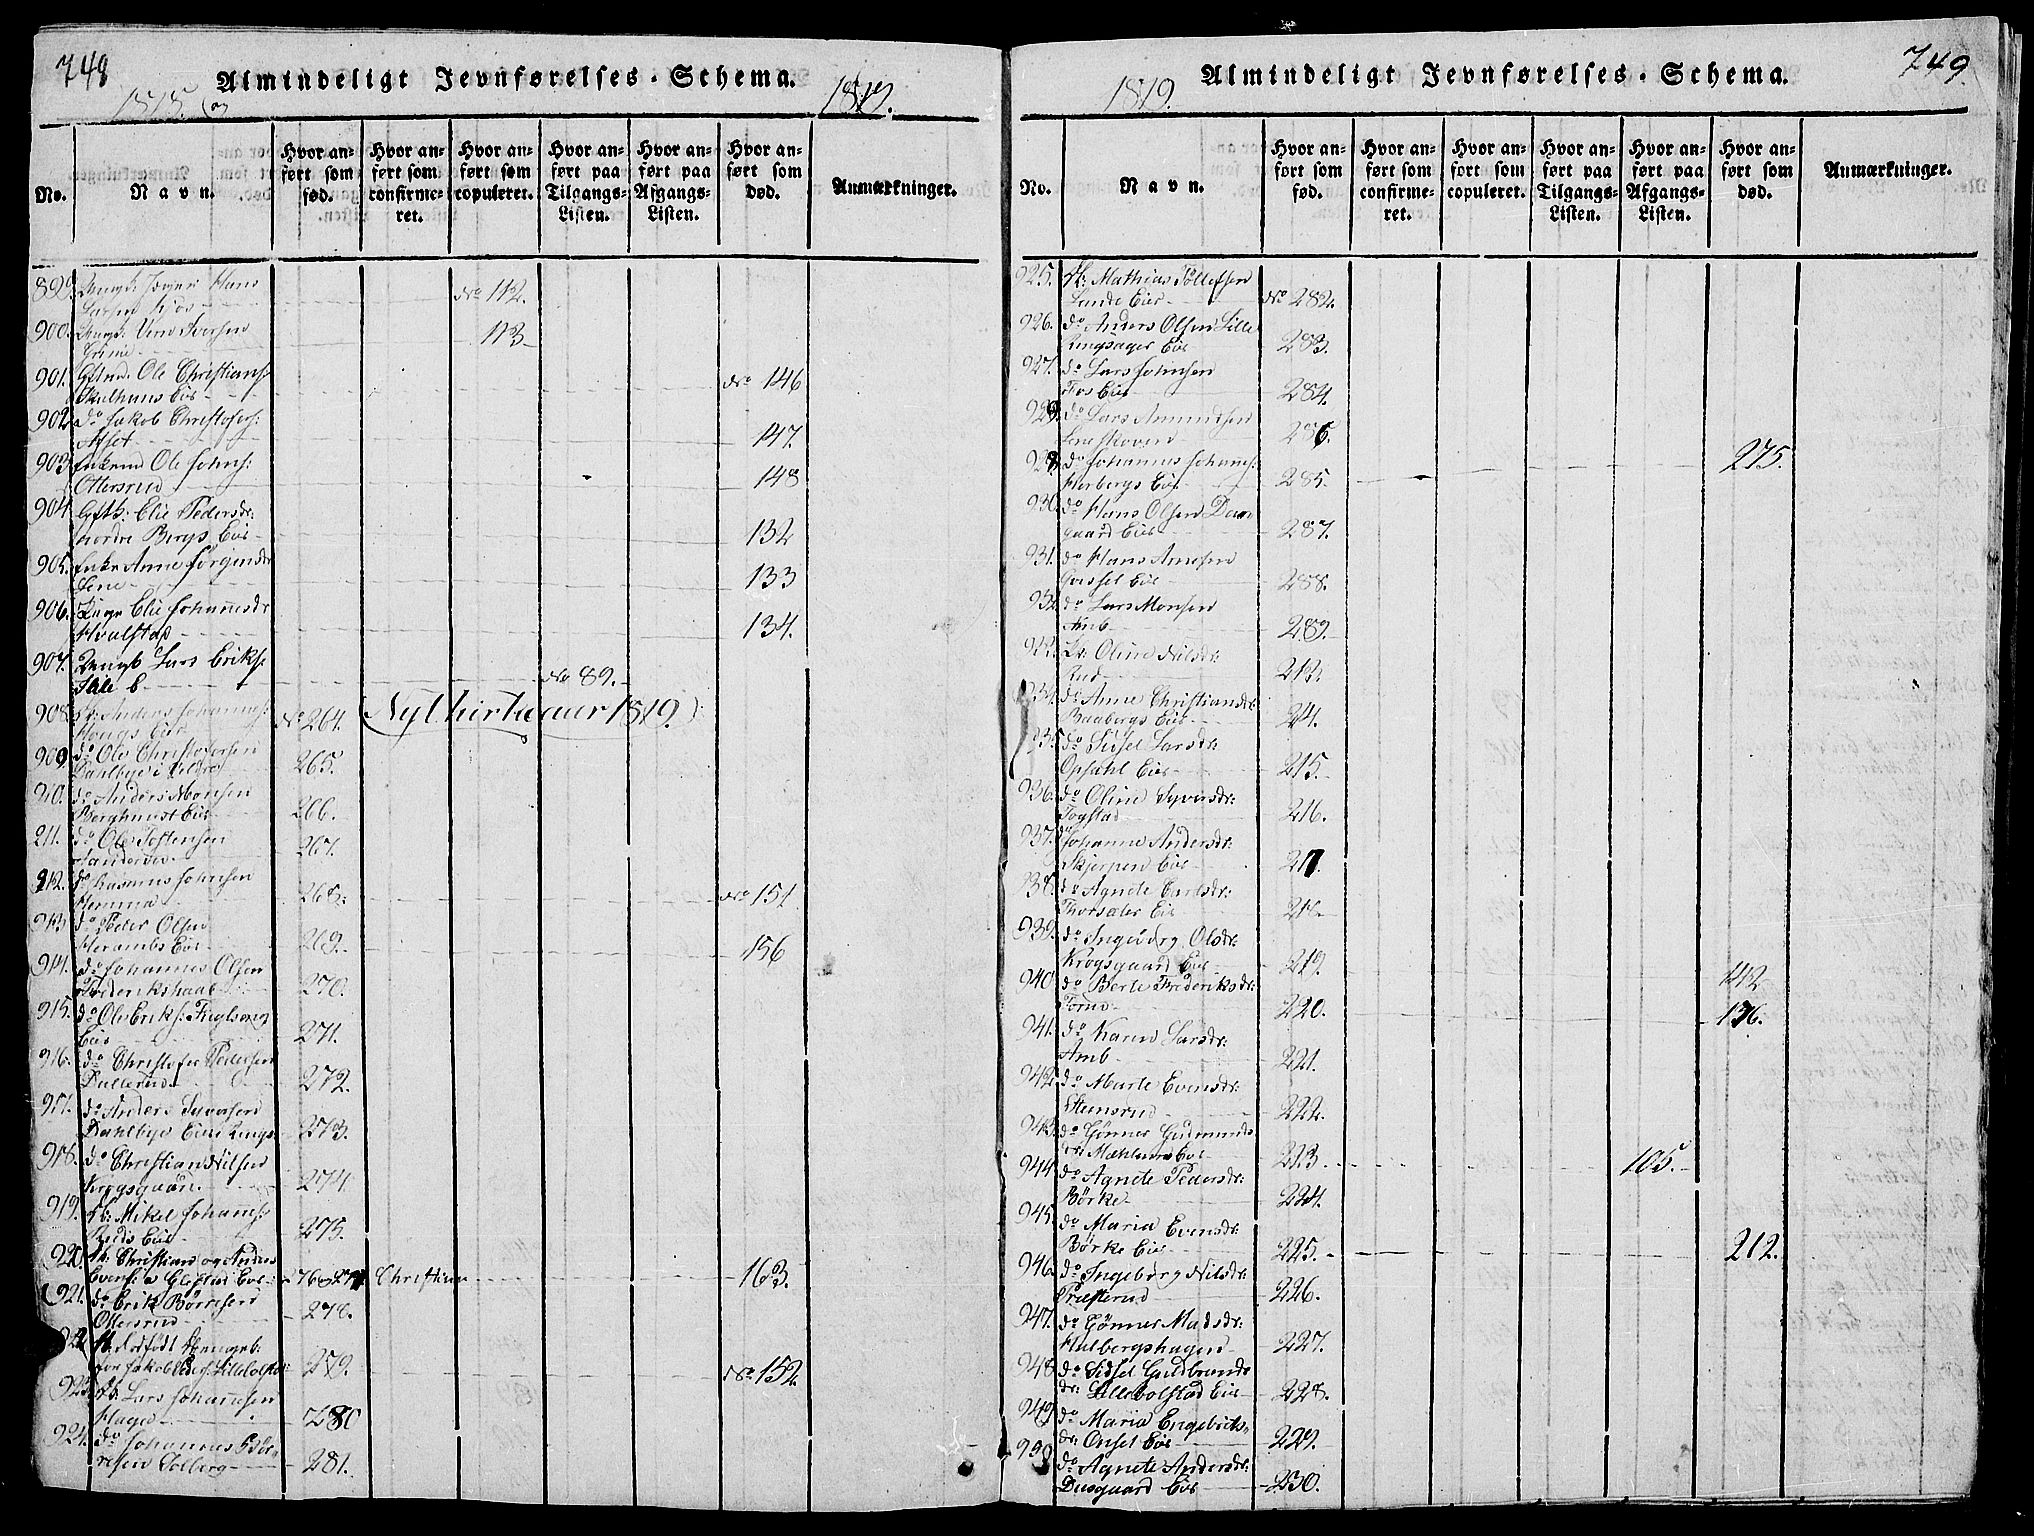 748
Almindeligt Jevnførelses-Schema.
1818. og
1819.
No.
Navn.
Hvor an-
ført som
fød.
Hvor an-
ført som
confirme-
ret.
Hvor an-
ført som
copuleret.
Hvor an-
ført paa
Tilgangs-
Listen.
Hvor an-
ført paa
Afgangs-
Listen.
Hvor an-
ført som
død.
Anmærkninger.
899. Ungk: Hans
Larsen No 112.
900. Ungk: Iversen
113
901. Gftmd. Ole Christians:
Skulhuus Eie No 146
902. do Jakob Christofers:
147.
903. Enkemd Ole Johns:
Ottersrud 148
904. Gftk: Elie Pedersdr:
nordre Bergs Eie 132
905. Enke Anne Jørgensdr
Lene 133
906. Pige Elie Johannesdr
Hvalstad 134.
907. Ungk Lars Eriks:
No 89.
(Nyt Kirkeaar 1819.)
908. Db: Anders Johannes:
Hougs Eie No 264.
909. do Ole Christofersen
Dahlbye i Veldre 265.
910. do Anders Monsen
Berghuust Eie 266.
911. do Ole Tostensen
267.
912. do Rasmus Johnsen
Hemma 268. No 151.
913. do Peder Olsen
Herambs Eie 269. 156
914. do Johannes Olsen
Frederikshaab 270.
915. do Ole Eriks: Fuglseng
Eie 271.
916. do Christofer Pedersen
Dullerud 272.
917. do Anders Syversen
Dahlbye Eie i Rings 273.
918. do Christian Nilsen
Krogsgaard. 274.
919. Db: Mikel Johannes:
Ruds Eie 275.
920. Db: Christian og Anders
Evens: a Glestad Eie 276 og 277 Christian 163.
921. do Erik Børresen
Ottersrud 278.
922. Et dødfødt Drengeb:
for Jakob Peders: Lillebolstad 279. No 152.
923. Db: Lars Johannesen
Hagen 280
924. do Johannes Bør-
resen Solberg 281.
749.
Almindeligt Jevnførelses-Schema.
1819.
No.
Navn.
Hvor an-
ført som
fød.
Hvor an-
ført som
confirme-
ret.
Hvor an-
ført som
copuleret.
Hvor an-
ført paa
Tilgangs-
Listen.
Hvor an-
ført paa
Afgangs-
Listen.
Hvor an-
ført som
død.
Anmærkninger.
925. Db: Mathias Tollefsen
Lunde Eier No 282.
926. do Anders Olsen Lille
Ringsager Eie 283.
927. do Lars Johnsen
Fos Eie 284.
929. do Lars Amundsen
Lieneskoven 286.
928. do Johannes Johannes:
Herbergs Eie 285. 275.
930. do Hans Olsen Dam-
gaard Eie 287.
931. do Hans Arnesen
Gaessel Eie 288.
932. do Lars Monsen
Amb 289.
933. Db: Oline Nilsdr:
Rud 213.
934. do Anne Christiansdr:
Baabergs Eie 214.
935. do Sidsel Larsdr:
Opsahl Eie 215.
936. do Oline Syversdr:
Fogstad 216.
937. do Johanne Andersdr:
Skjerpen Eie 217.
938. do Agnete Carlsdr:
Thorsæter Eie 218.
939. do Ingeborg Olsdr:
Krogsgaard Eie 219. 142
940. do Berte Frederiksdr:
Torud 220. 136.
941. do Karen Larsdr:
Amb 221.
942. do Marte Evensdr:
Steensrud 222.
943. do Gønner Gudmunds
dr: Mæhlum Eie 223. 105.
944. do Agnete Pedersdr:
Børke 224.
945. do Maria Evensdr:
Børke Eie 225. 212.
946. do Ingeborg Nilsdr:
Præsterud 226.
947. do Gønner Madsdr:
Hulbergshagen 227.
948. do Sidsel Guldbrands
dr: Lillebolstad Eie 228.
949. do Maria Engebrits-
dr: Onsel Eie 229.
950. do Agnete Andersdr:
Dusgaard Eie 230.